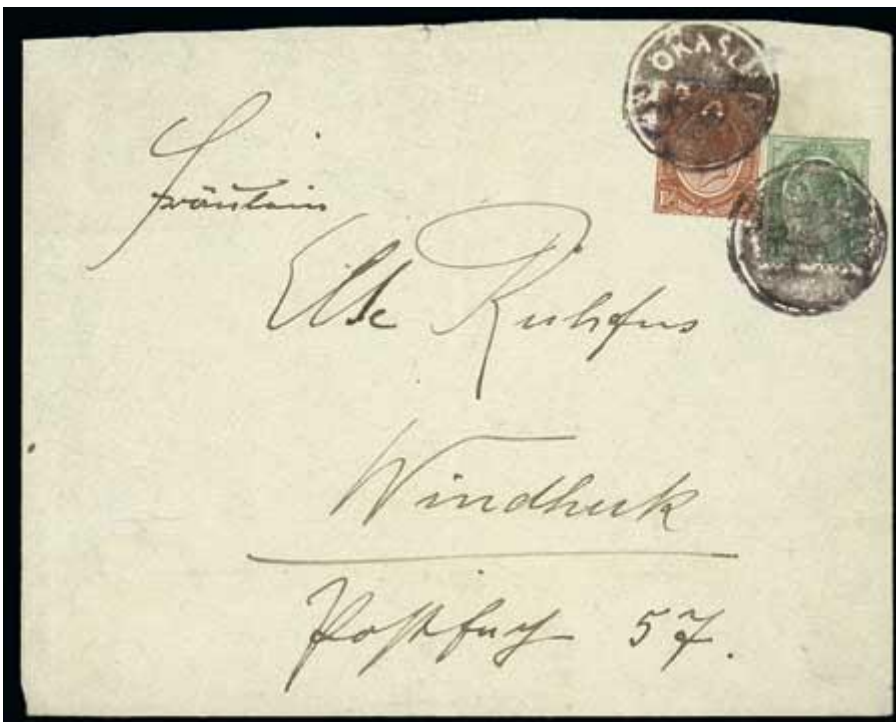 OKAS
Fräulein
Else Ruhfus
Windhuk
Postfach 57.